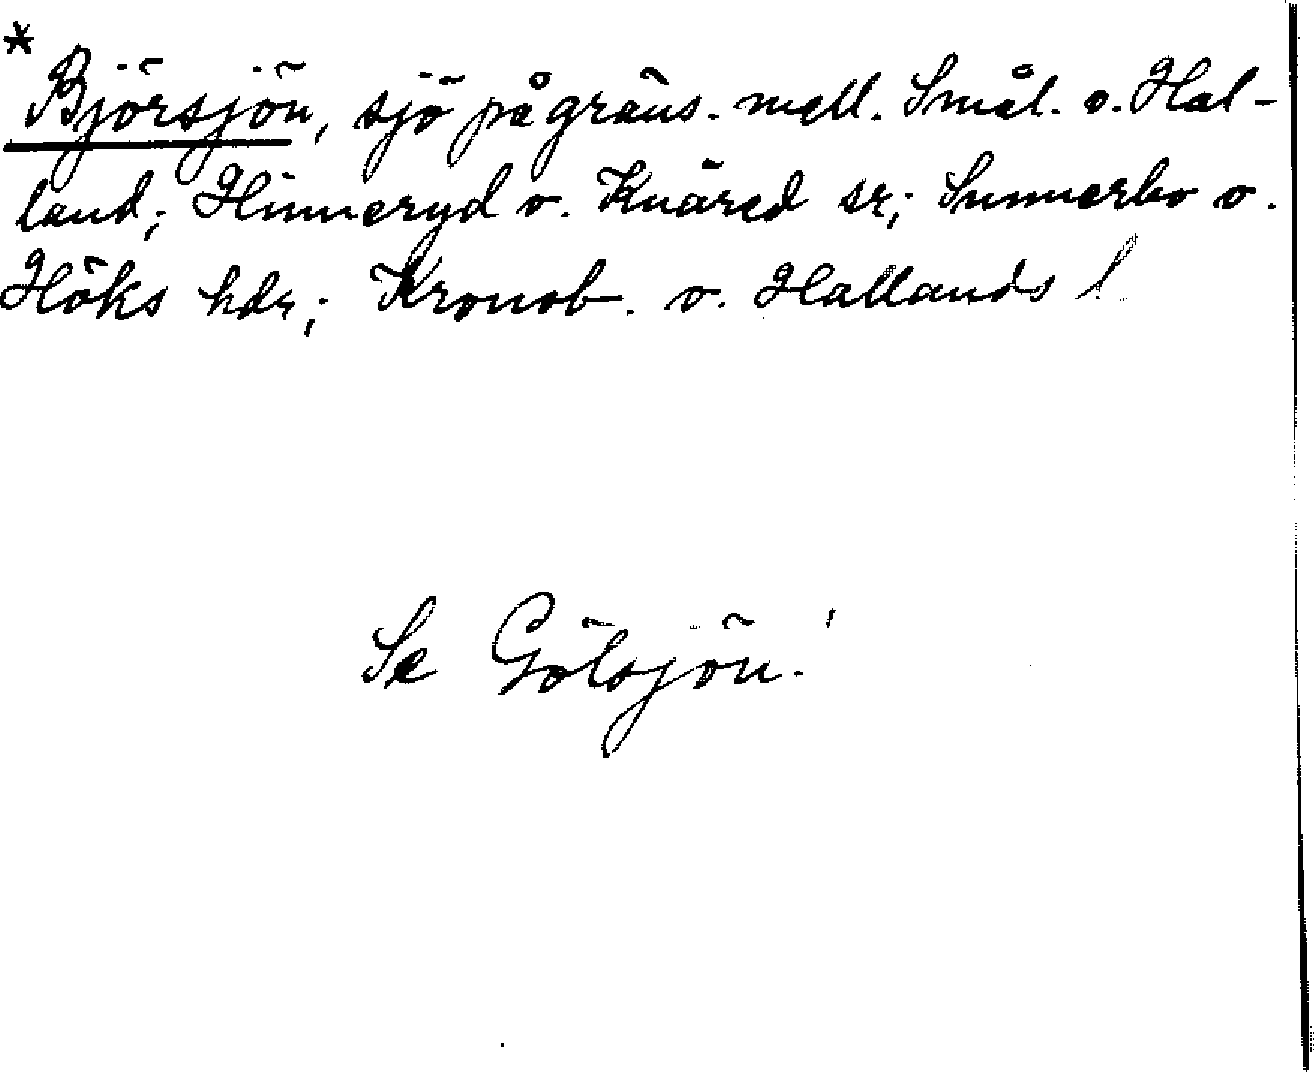 * Björsjön, sjö på gräns. mell. Smål. o. Hal-
land; Hinneryd o. Knäred sr; Sunnerbo o.
Höks hdr; Kronob. o. Hallands l
Se Gölsjön!